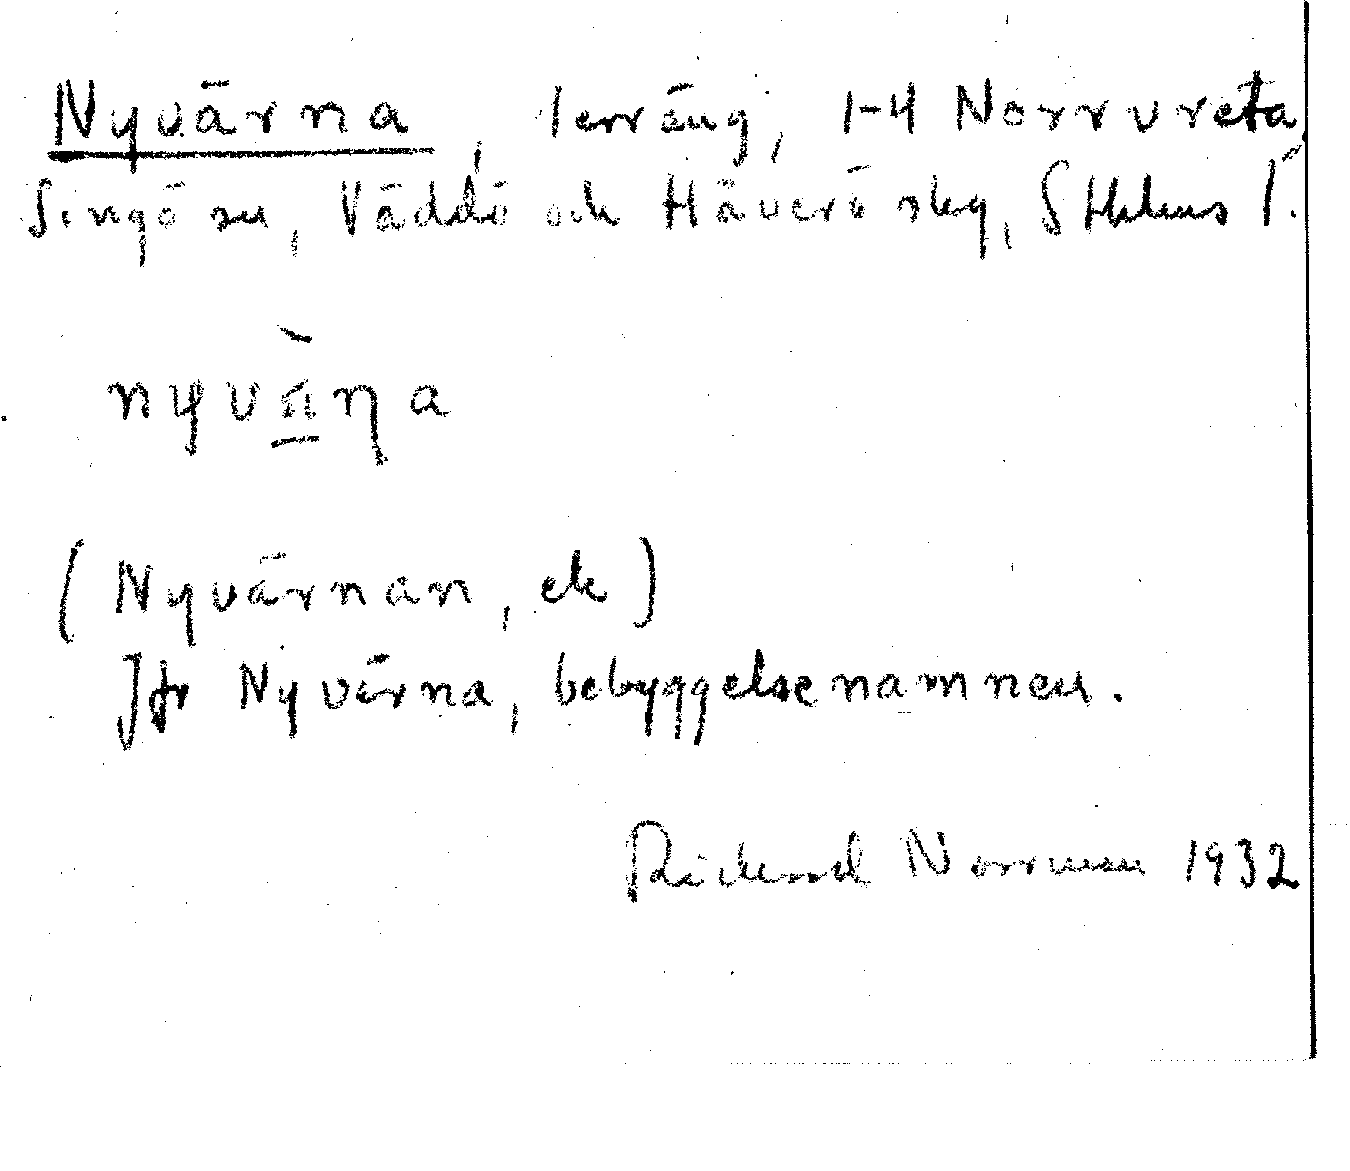 Nyvärna, terräng, 1-4 Norrvreta,
Singö sn, Väddö och Häverö skg, Sthlms l.
nyvä̀ṇa
(Nyvärnan, ek)
Jfr Nyvärna, bebyggelsenamnen.
Rickard Norrman 1932